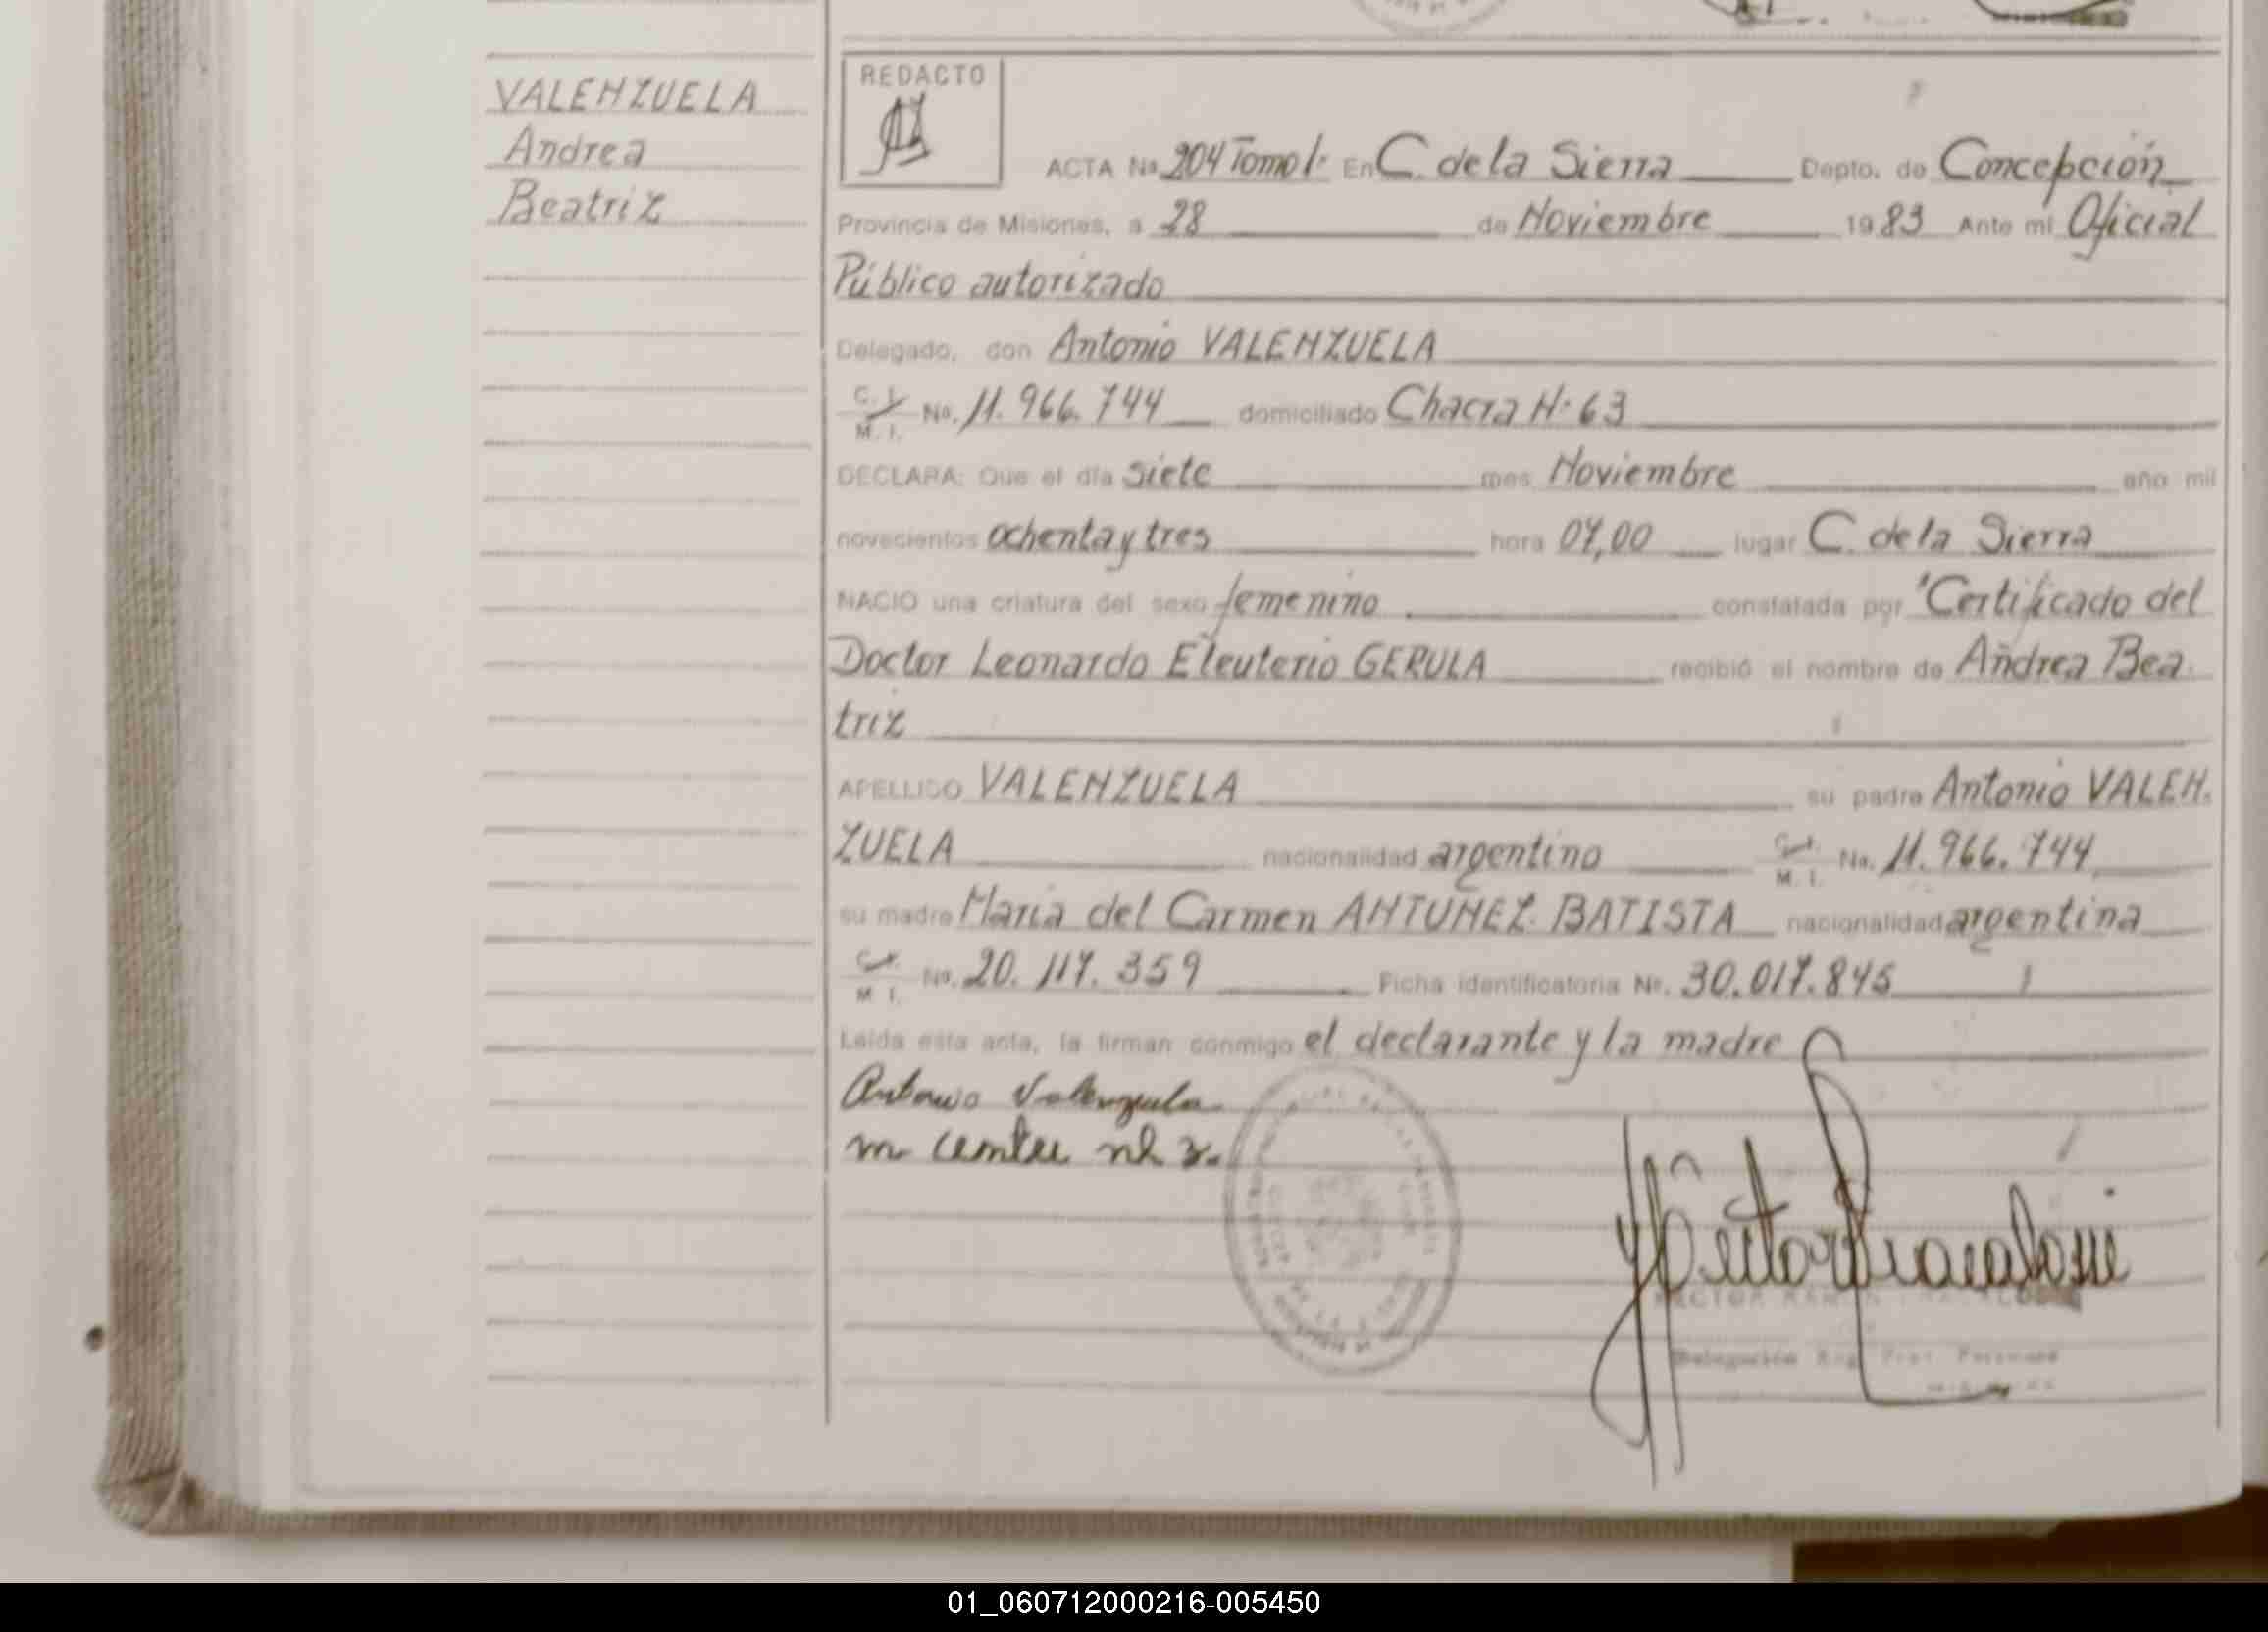 VALENZUELA
Andrea
Beatriz
REDACTO
ACTA No 204 Tomo I· En C. de la Sierra Depto. de Concepción
Provincia de Misiones, a 28 de Noviembre 1983 Ante mi Oficial
Público autorizado
Delegado, don Antonio VALENZUELA
C. I. M. I. No. 11.966.744 domiciliado Chacra N· 63
DECLARA: Que el día siete mes Noviembre año mil
novecientos ochenta y tres hora 07,00 lugar C. de la Sierra
NACIO una criatura del sexo femenino constatada por Certificado del
Doctor Leonardo Eleuterio GERULA recibió el nombre de Andrea Bea
triz
APELLIDO VALENZUELA su padre Antonio VALEN.
ZUELA nacionalidad argentino C. I. M. I. No. 11.966.744
su madre Maria del Carmen ANTUNEZ BATISTA nacionalidad argentina
C. I. M. I. No. 20.117.359 Ficha identificatoria No. 30.017.845
Leída esta acta, la firman conmigo el declarante y la madre
Antonio Valenzuela
Delegación
01_060712000216-005450